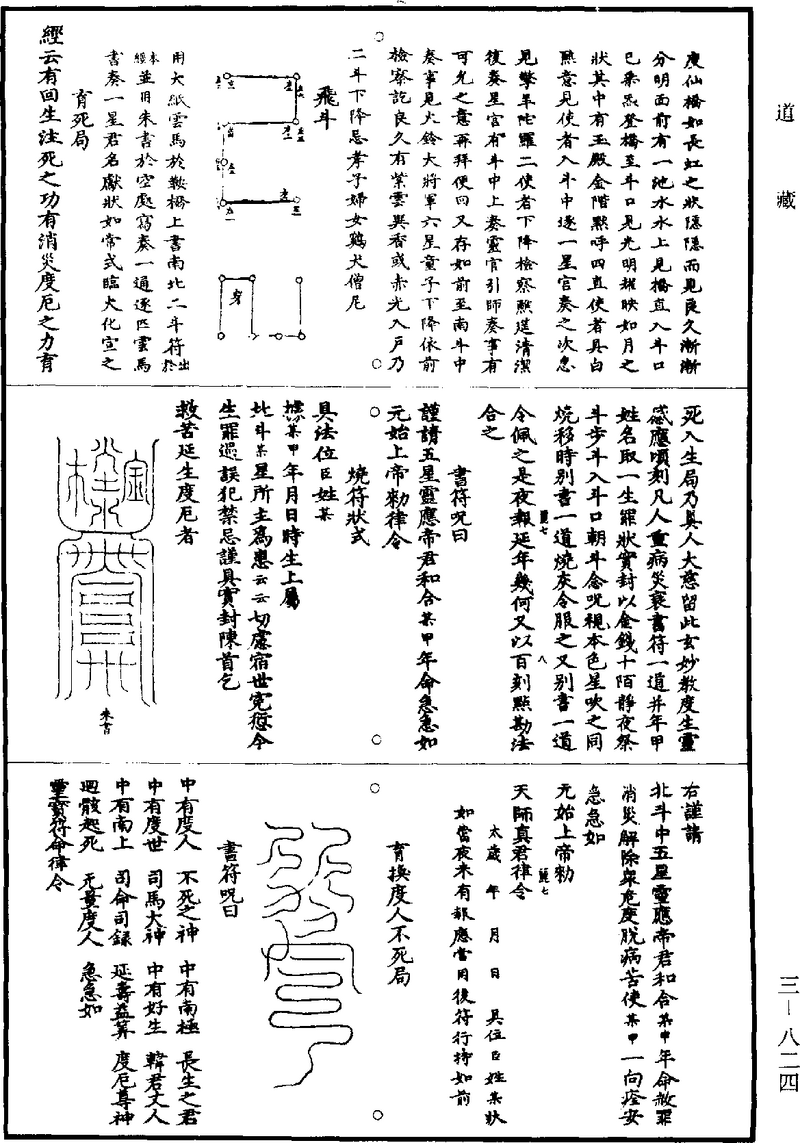 道藏
三－八二四
度仙橋如長虹之狀隱隱而見良久漸漸
分明面前有一池水水上見橋直入斗口
已乘炁登橋至斗口見光明耀映如月之
狀其中有玉殿金階黙呼四直使者具白
黙意見使者入斗中逐一星宮奏之次急
見擎羊陀羅二使者下降檢察黙筵清潔
復奏星宮有斗中上奏靈官引師奏事有
可允之意再拜便回又存如前至南斗中
奏事見火鈴大將軍六星童子下降依前
檢察訖良久有紫雲異香或赤光入戶乃
二斗下降忌孝子婦女鷄犬僧尼
飛斗
身
用大紙雲馬於鞍橋上書南北二斗符出於
並用朱書於空處寫奏一通逐匹雲馬
書奏一星君名獻狀如常式臨火化宣之
育死局
經云有回生注死之功有消災度厄之力育
死入生局乃眞人大慈留此玄妙敎度生靈
感應頃刻凡人重病災衰書符一道并年甲
姓名取一生罪狀實封以金錢十陌靜夜祭
斗步斗入斗口朝斗念呪視本色星吹之同
燒移時別書一道燒灰令服之又別書一道
令佩之是夜報延年幾何又以百刻黙勘法
合之
書符呪曰
謹請五星靈應帝君和合某甲年命急急如
元始上帝勑律令
燒符狀式
具法位臣姓某
據某甲年月日時生上屬
北斗某星所主爲患云云切慮宿世寃愆今
生罪過誤犯禁忌謹具實封陳首乞
救苦延生度厄者
朱書
右謹請
北斗中五星靈應帝君和合某甲年命赦罪
消災解除衆危度脫病苦使某甲一向痊安
急急如
元始上帝勑
天師真君律令
太歲 年 月 日 具位臣姓某狀
如當夜未有報應當用後符行持如前
育換度人不死局
書符呪曰
中有度人 不死之神 中有南極 長生之君
中有度世 司馬大神 中有好生 韓君丈人
中有南上 司命司錄 延壽益筭 度厄尊神
迴骸起死 无量度人 急急如
靈寳符命律令